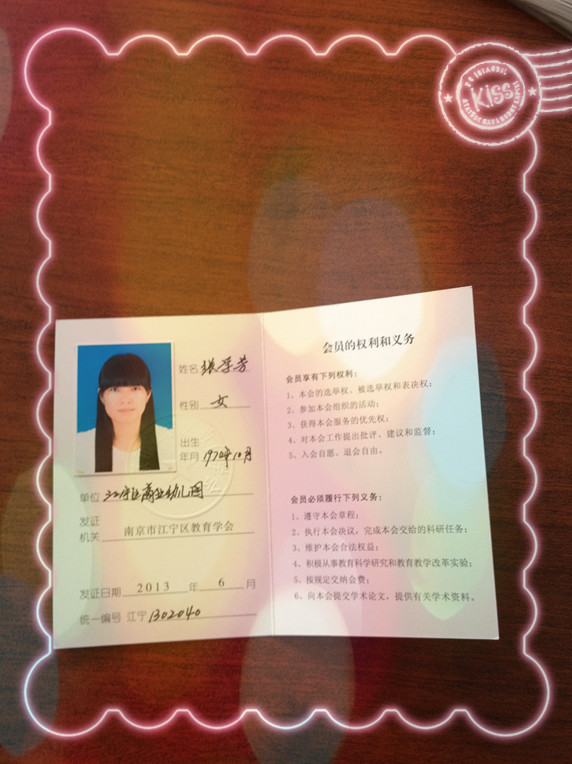 KISS
姓名 张学芳
性别 女
出生
年月 1972年10月
单位 江宁区商业幼儿园
发证
机关 南京市江宁区教育学会
发证日期 2013 年 6 月
统一编号 江宁1302040
会员的权利和义务
会员享有下列权利：
1、本会的选举权、被选举权和表决权；
2、参加本会组织的活动；
3、获得本会服务的优先权；
4、对本会工作提出批评、建议和监督；
5、入会自愿、退会自由。
会员必须履行下列义务：
1、遵守本会章程；
2、执行本会决议，完成本会交给的科研任务；
3、维护本会合法权益；
4、积极从事教育科学研究和教育教学改革实验；
5、按规定交纳会费；
6、向本会提交学术论文，提供有关学术资料。